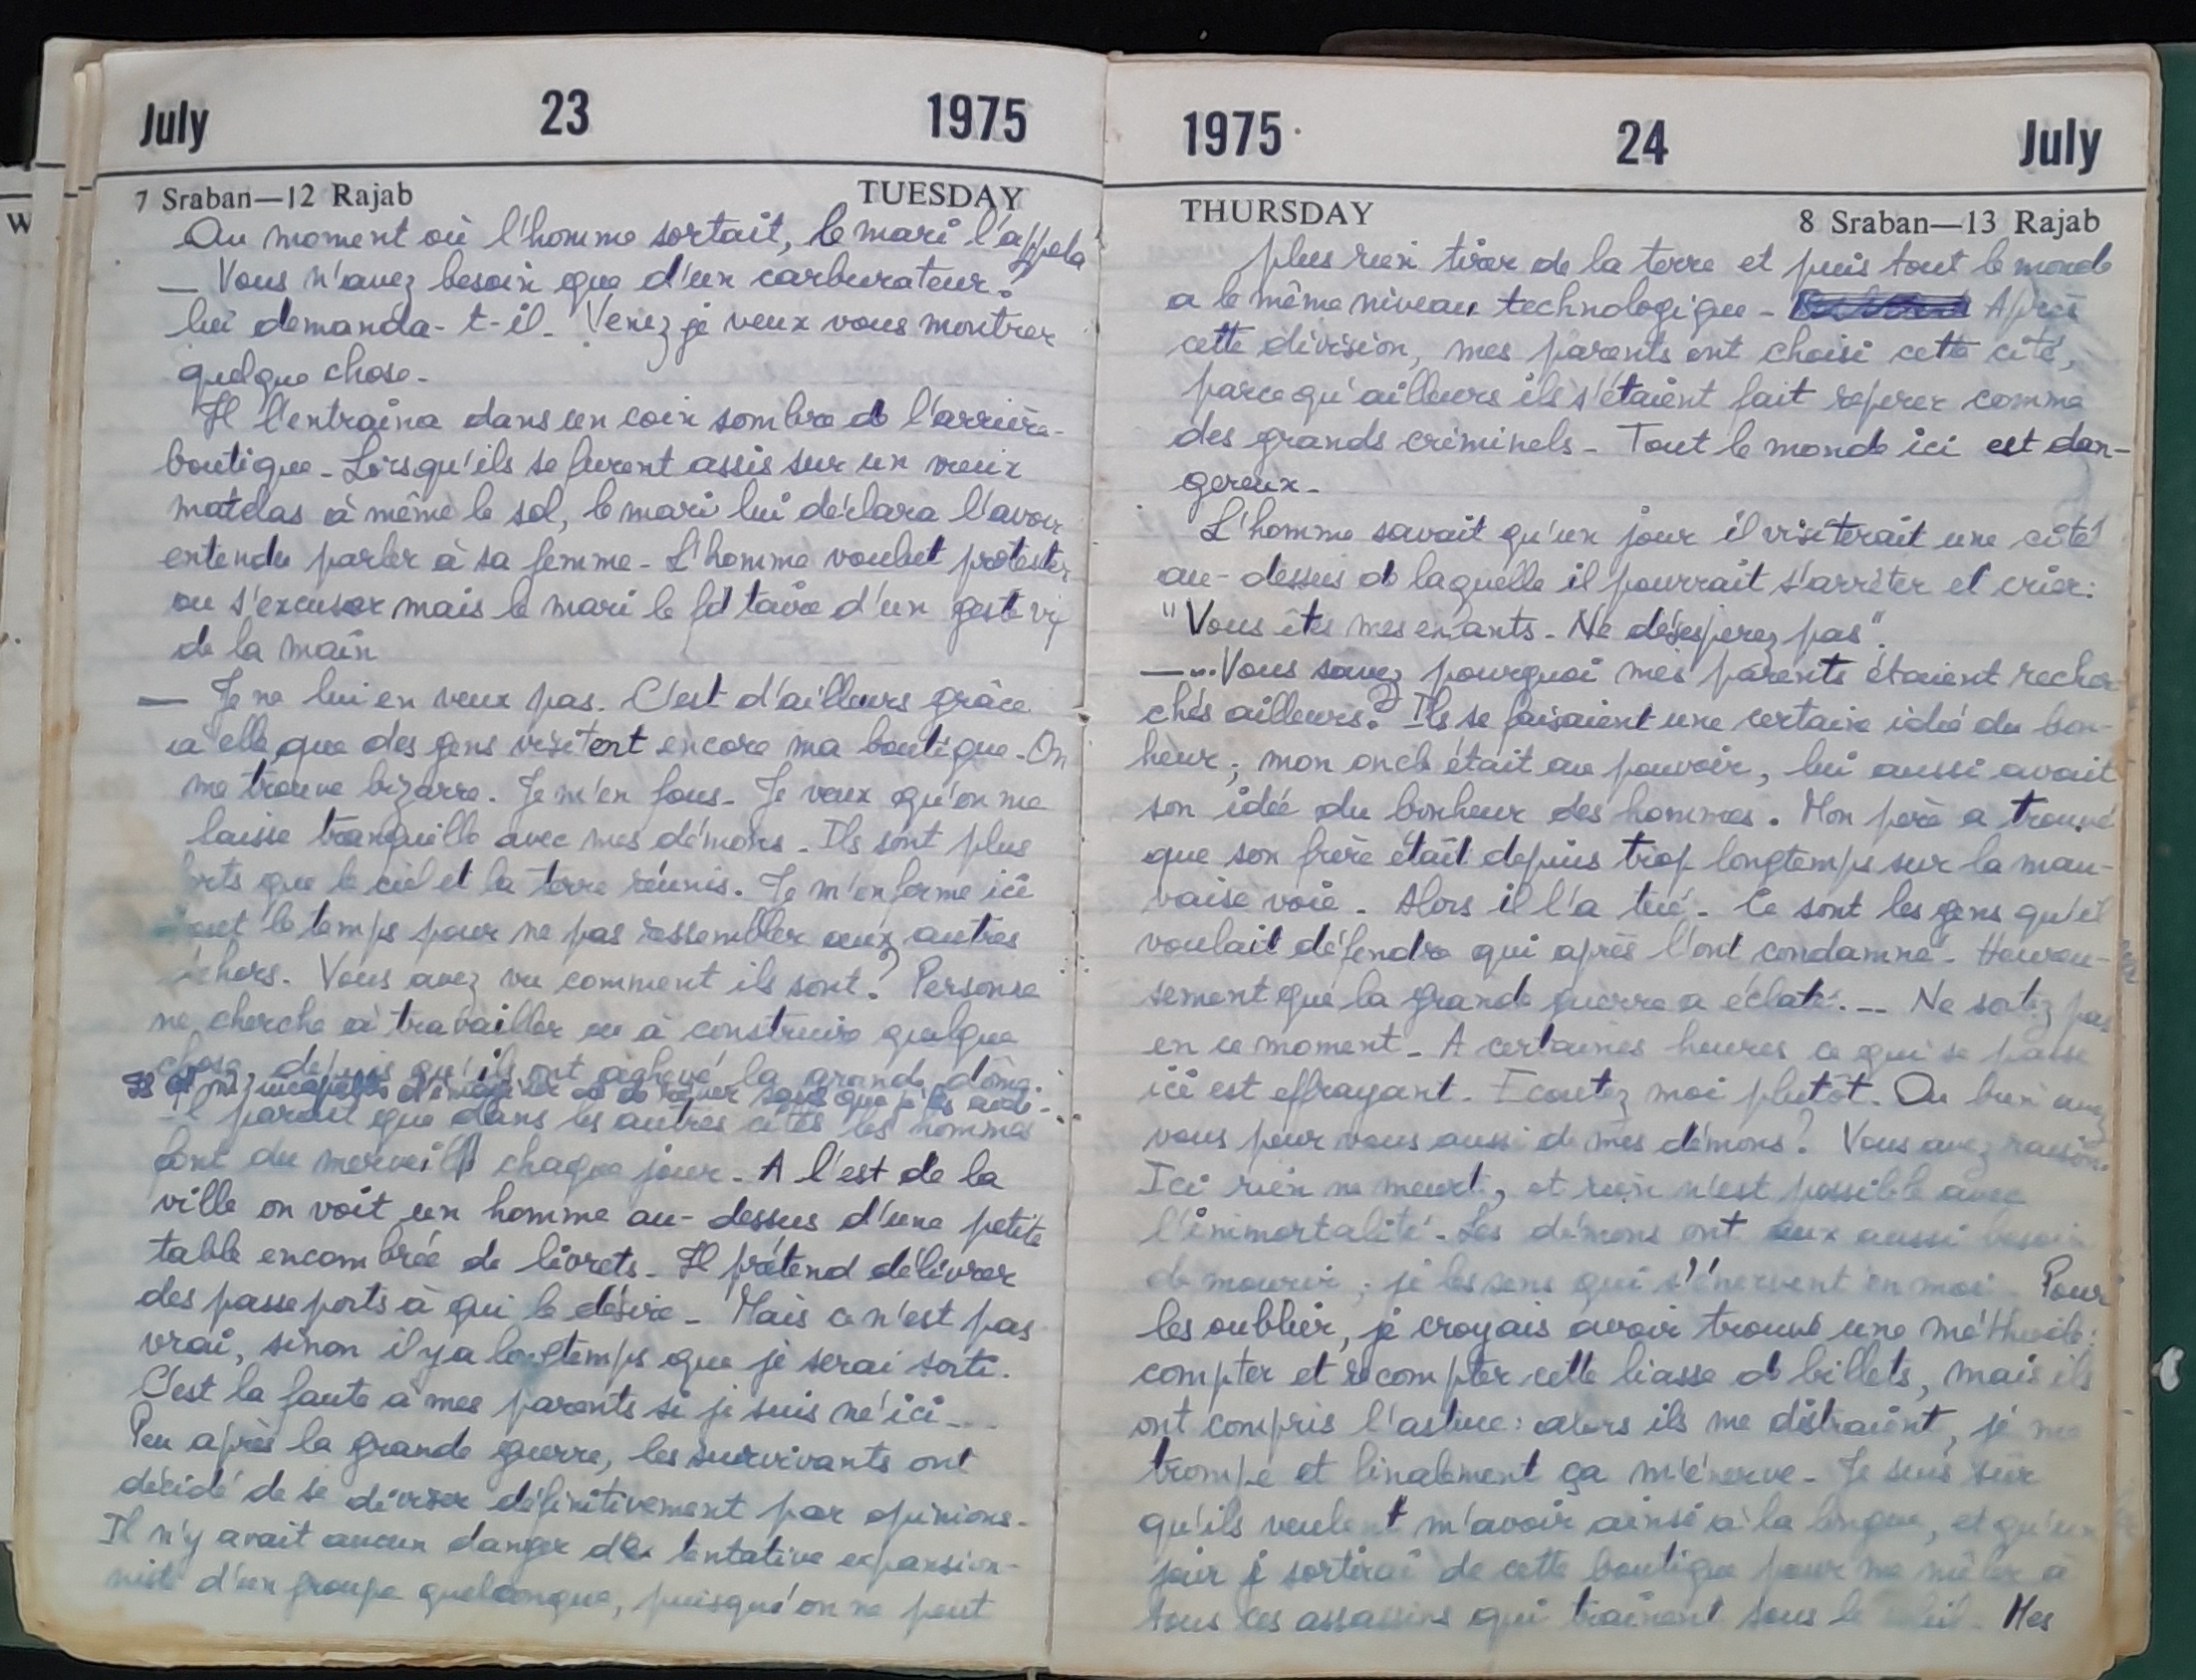 July 23 1975
7 Sraban—12 Rajab TUESDAY
Au moment où l'homme sortait, le mari l'appela
— Vous n'avez besoin que d'un carburateur?
lui demanda-t-il. Venez je veux vous montrer
quelque chose.
Il l'entraîna dans un coin sombre de l'arrière-
boutique. Lorsqu'ils se furent assis sur un vieux
matelas à même le sol, le mari lui déclara l'avoir
entendu parler à sa femme. L'homme voulut protester
ou s'excuser mais le mari le fit taire d'un geste vif
de la main
— Je ne lui en veux pas. C'est d'ailleurs grâce
à elle que des gens visitent encore ma boutique. On
me trouve bizarre. Je m'en fous. Je veux qu'on me
laisse tranquille avec mes démons. Ils sont plus
forts que le ciel et la terre réunis. Je m'enferme ici
tout le temps pour ne pas ressembler aux autres
dehors. Vous avez vu comment ils sont? Personne
ne cherche à travailler ou à construire quelque
chose, depuis qu'ils ont achevé la grande
Il parait que dans les autres cités les hommes
font du merveil chaque jour. A l'est de la
ville on voit un homme au-dessus d'une petite
table encombrée de livrets. Il prétend délivrer
des passeports à qui le désire. Mais ce n'est pas
vrai, sinon il y a longtemps que je serai sorti.
C'est la faute à mes parents si je suis né ici...
Peu après la grande guerre, les survivants ont
décidé de se diviser définitivement par opinions.
Il n'y avait aucun danger de tentative expansion-
niste d'un groupe quelconque, puisqu'on ne peut
1975 24 July
THURSDAY 8 Sraban—13 Rajab
plus rien tirer de la terre et puis tout le monde
a le même niveau technologique. Après
cette division, mes parents ont choisi cette cité,
parce qu'ailleurs ils s'étaient fait reperer comme
des grands criminels. Tout le monde ici est dan-
gereux.
L'homme savait qu'un jour il visiterait une cité
au-dessus de laquelle il pourrait s'arrêter et crier:
"Vous êtes mes enfants. Ne désesperez pas".
—...Vous savez pourquoi mes parents étaient recher
chés ailleurs? Ils se faisaient une certaine idée du bon-
heur; mon oncle était au pouvoir, lui aussi avait
son idée du bonheur des hommes. Mon père a trouvé
que son frère était depuis trop longtemps sur la mau-
vaise voie. Alors il l'a tué. Ce sont les gens qu'il
voulait défendre qui après l'ont condamné. Heureu-
sement que la grande guerre a éclaté... Ne sortez pas
en ce moment. A certaines heures ce qui se passe
ici est effrayant. Ecoutez moi plutôt. Ou bien avez
vous peur vous aussi de mes démons? Vous avez raison.
Ici rien ne meurt, et rien n'est possible avec
l'immortalité. Les démons ont eux aussi besoin
de mourir, je les sens qui s'énervent en moi. Pour
les oublier, je croyais avoir trouvé une méthode:
compter et recompter cette liasse de billets, mais ils
ont compris l'astuce: alors ils me distraient, je me
trompe et finalement ça m'énerve. Je suis sûr
qu'ils veulent m'avoir ainsi à la longue, et qu'un
jour je sortirai de cette boutique pour me mêler à
tous ces assassins qui trainent sous le soleil. Mes